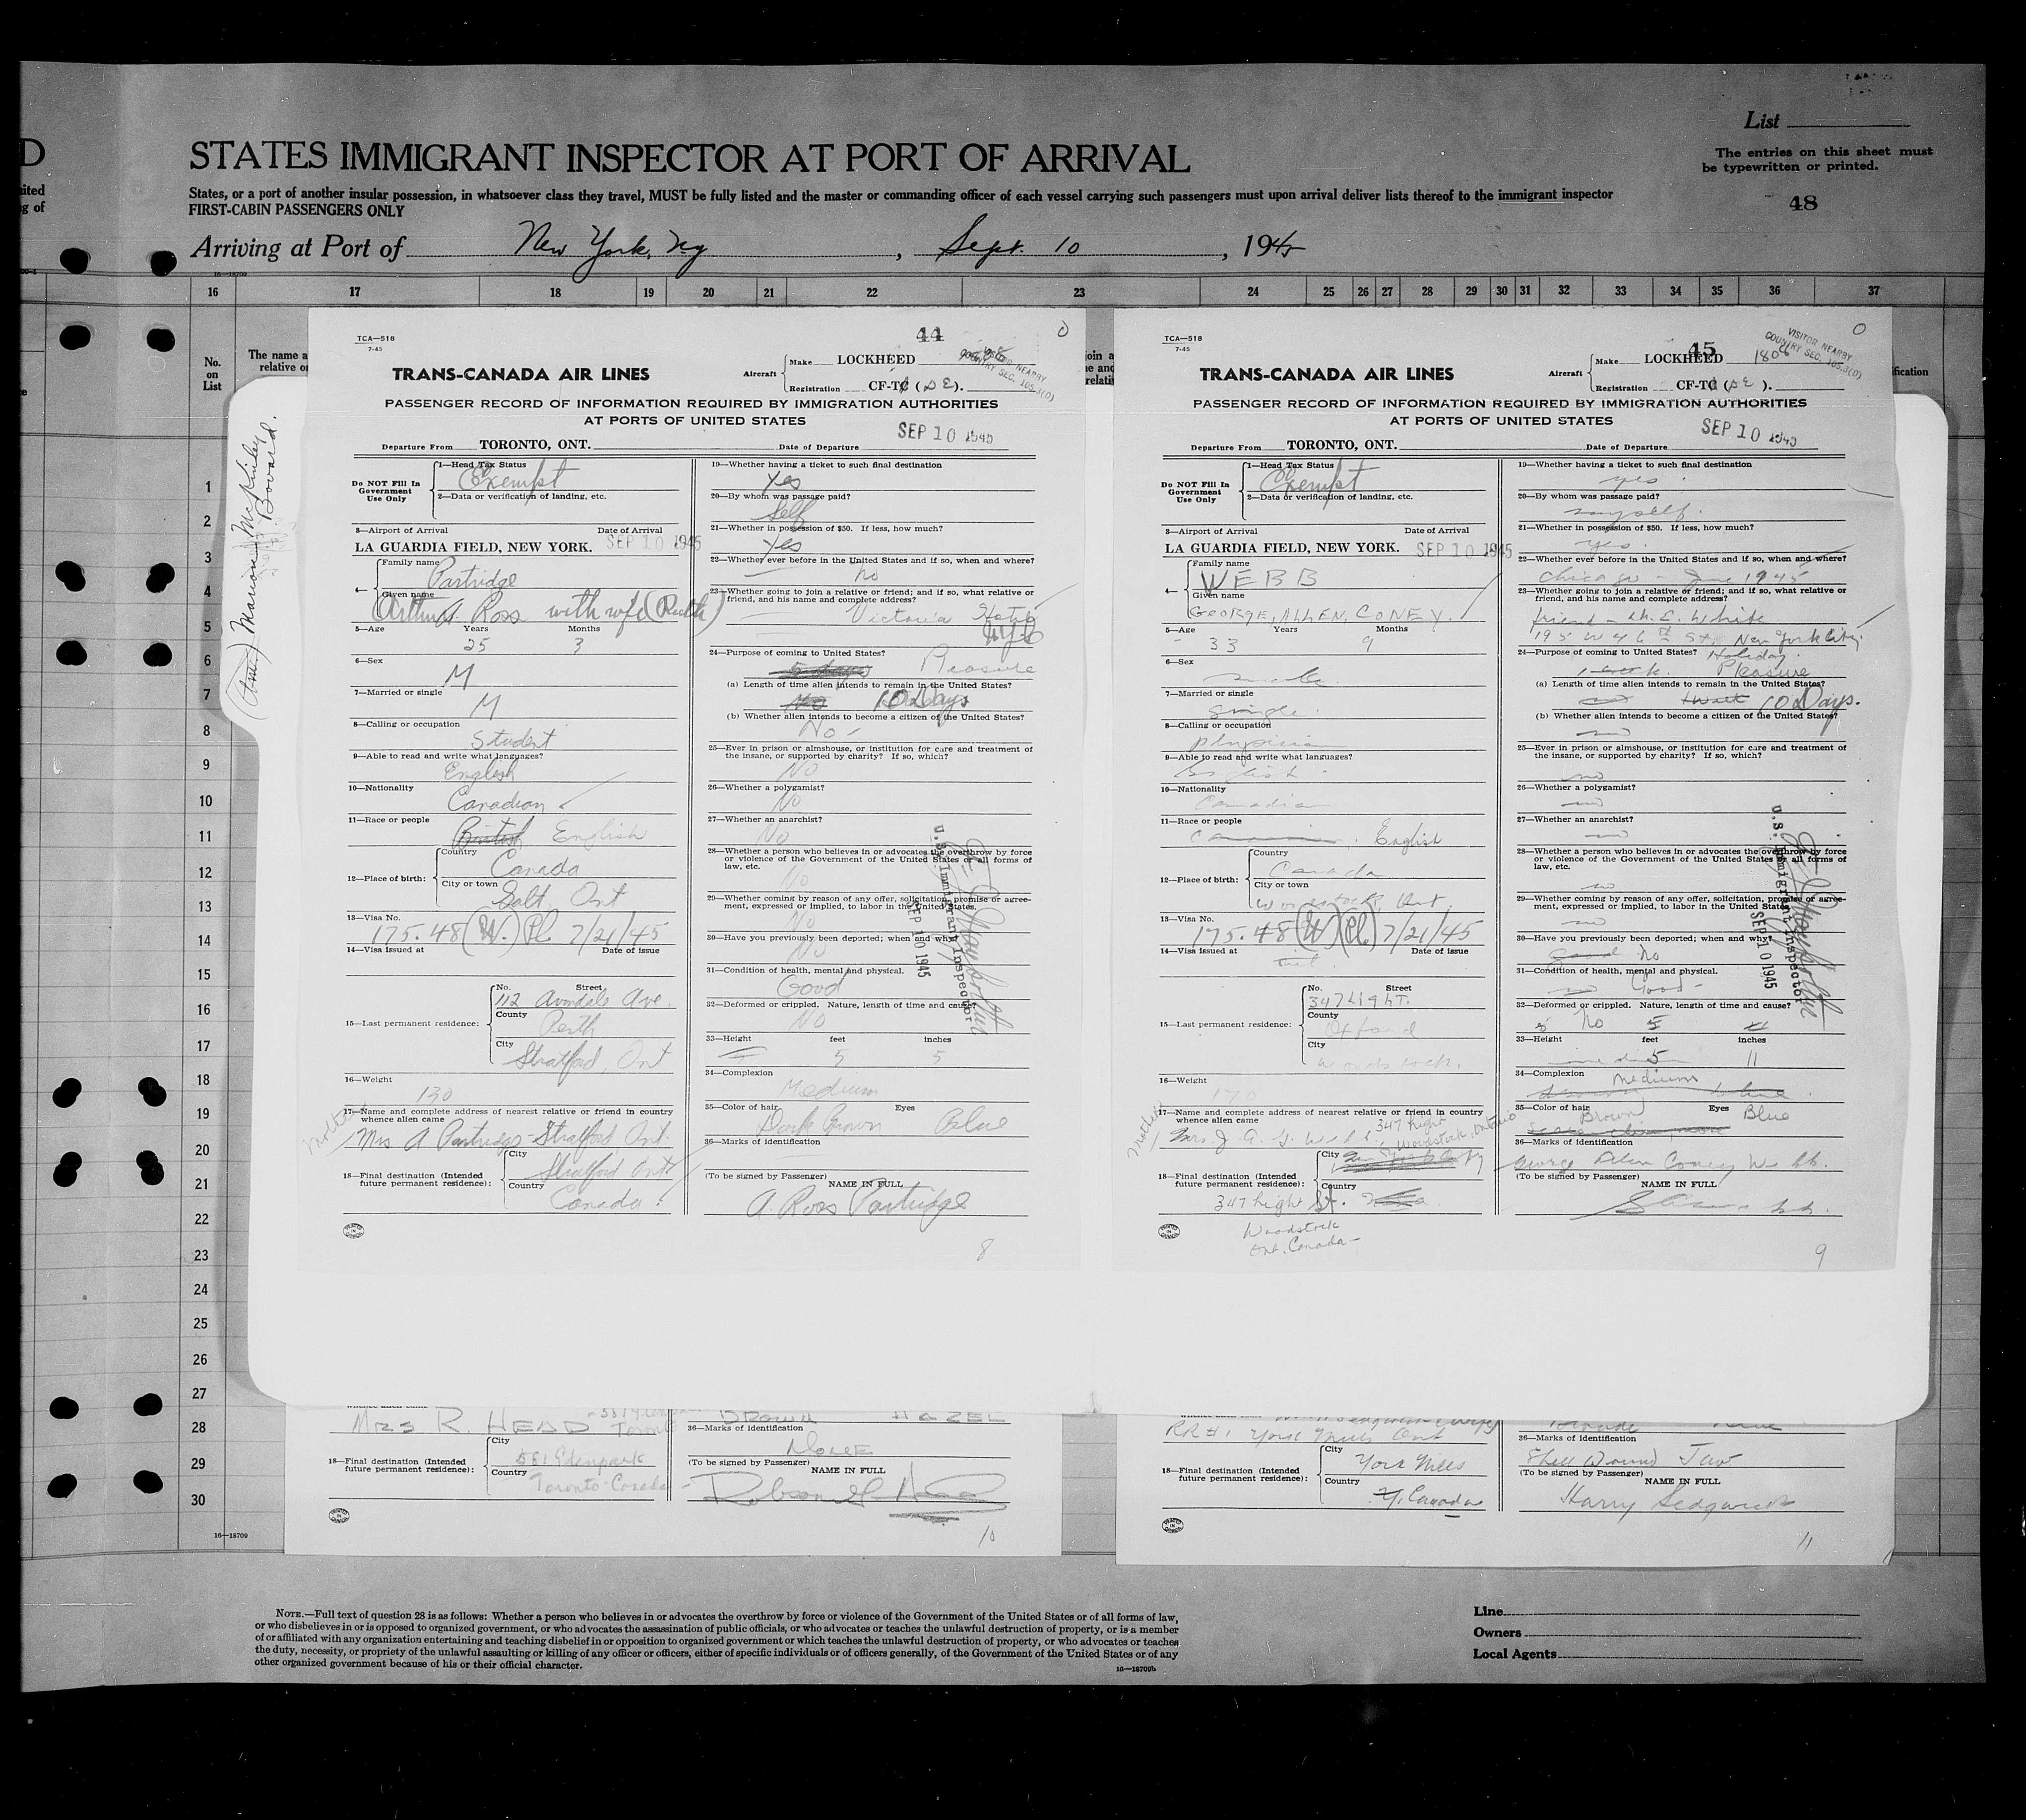 D
STATES IMMIGRANT INSPECTOR AT PORT OF ARRIVAL
List
The entries on this sheet must
be typewritten or printed.
48
States, or a port of another insular possession, in whatsoever class they travel, MUST be fully listed and the master or commanding officer of each vessel carrying such passengers must upon arrival deliver lists thereof to the immigrant inspector
FIRST-CABIN PASSENGERS ONLY
Arriving at Port of New York, Ny, Sept. 10, 1945
16 17 18 19 20 21 22 23 24 25 26 27 28 29 30 31 32 33 34 35 36 37
No.
on
List
The name a
relative or
1
2
3
4
5
6
7
8
9
10
11
12
13
14
15
16
17
18
19
20
21
22
23
24
25
26
27
28
29
30
16—18709
TCA—518
7-45
44
Aircraft
Make LOCKHEED
Registration CF-TC (DE).
VISITOR NEARBY
COUNTRY SEC. 165.3(D)
TRANS-CANADA AIR LINES
PASSENGER RECORD OF INFORMATION REQUIRED BY IMMIGRATION AUTHORITIES
AT PORTS OF UNITED STATES
SEP 10 1945
Departure From TORONTO, ONT. Date of Departure
Do NOT Fill In
Government
Use Only
1—Head Tax Status
Exempt
2—Data or verification of landing, etc.
3—Airport of Arrival Date of Arrival
LA GUARDIA FIELD, NEW YORK. SEP 10 1945
4—
Family name
Partridge
Given name
Arthur A. Ross with wife (Ruth)
5—Age Years Months
25 3
6—Sex
M
7—Married or single
M
8—Calling or occupation
Student
9—Able to read and write what languages?
English
10—Nationality
Canadian
11—Race or people
British English
12—Place of birth:
Country
Canada
City or town
Galt. Ont
13—Visa No.
175.48 (W.) Pl. 7/21/45
14—Visa issued at Date of issue
15—Last permanent residence:
No. Street
112 Avondale Ave.
County
Perth
City
Stratford, Ont
16—Weight
130
17—Name and complete address of nearest relative or friend in country
whence alien came
mother
Mrs A Partridge - Stratford Ont.
18—Final destination (Intended
future permanent residence):
City
Stratford Ont
Country
Canada
19—Whether having a ticket to such final destination
Yes
20—By whom was passage paid?
Self
21—Whether in possession of $50. If less, how much?
Yes
22—Whether ever before in the United States and if so, when and where?
no
23—Whether going to join a relative or friend; and if so, what relative or
friend, and his name and complete address?
Victoria Hotel
NYC
24—Purpose of coming to United States?
5 days Pleasure
(a) Length of time alien intends to remain in the United States?
No 10 Days
(b) Whether alien intends to become a citizen of the United States?
No -
25—Ever in prison or almshouse, or institution for care and treatment of
the insane, or supported by charity? If so, which?
No
26—Whether a polygamist?
No
27—Whether an anarchist?
No
28—Whether a person who believes in or advocates the overthrow by force
or violence of the Government of the United States or all forms of
law, etc.
No
29—Whether coming by reason of any offer, solicitation, promise or agree-
ment, expressed or implied, to labor in the United States.
No
30—Have you previously been deported; when and why?
No
31—Condition of health, mental and physical.
Good
32—Deformed or crippled. Nature, length of time and cause?
No
33—Height feet inches
5 5
34—Complexion
Medium
35—Color of hair Eyes
Dark Brown Blue
36—Marks of identification
(To be signed by Passenger)
NAME IN FULL
A. Ross Partridge
8
U.S. Immigrant Inspector
SEP 10 1945
TCA—518
7-45
45
Aircraft
Make LOCKHEED
Registration CF-TC (DE ).
VISITOR NEARBY
COUNTRY SEC. 165.3(D)
TRANS-CANADA AIR LINES
PASSENGER RECORD OF INFORMATION REQUIRED BY IMMIGRATION AUTHORITIES
AT PORTS OF UNITED STATES
SEP 10 1945
Departure From TORONTO, ONT. Date of Departure
Do NOT Fill In
Government
Use Only
1—Head Tax Status
Exempt
2—Data or verification of landing, etc.
3—Airport of Arrival Date of Arrival
LA GUARDIA FIELD, NEW YORK. SEP 10 1945
4—
Family name
WEBB
Given name
GEORGE, ALLEN, CONEY.
5—Age Years Months
33 9
6—Sex
male
7—Married or single
Single.
8—Calling or occupation
physician
9—Able to read and write what languages?
English.
10—Nationality
Canadian
11—Race or people
English
12—Place of birth:
Country
Canada
City or town
Woodstock, Ont.
13—Visa No.
175.48 (W) (Pl.) 7/21/45
14—Visa issued at Date of issue
15—Last permanent residence:
No. Street
347 LIGHT.
County
Oxford
City
Woodstock.
16—Weight
170
17—Name and complete address of nearest relative or friend in country
whence alien came
mother
Mrs. J. G. G. Webb 347 Light
Woodstock, Ontario
18—Final destination (Intended
future permanent residence):
City
Country
347 Light St.
Woodstock
Ont. Canada-
19—Whether having a ticket to such final destination
yes.
20—By whom was passage paid?
myself.
21—Whether in possession of $50. If less, how much?
yes.
22—Whether ever before in the United States and if so, when and where?
Chicago - June 1945
23—Whether going to join a relative or friend; and if so, what relative or
friend, and his name and complete address?
friend - White
195 W 46th St. New York City.
24—Purpose of coming to United States? Holiday.
1 week. Pleasure
(a) Length of time alien intends to remain in the United States?
1 week 10 Days.
(b) Whether alien intends to become a citizen of the United States?
no
25—Ever in prison or almshouse, or institution for care and treatment of
the insane, or supported by charity? If so, which?
no
26—Whether a polygamist?
no
27—Whether an anarchist?
no
28—Whether a person who believes in or advocates the overthrow by force
or violence of the Government of the United States or all forms of
law, etc.
no
29—Whether coming by reason of any offer, solicitation, promise or agree-
ment, expressed or implied, to labor in the United States.
no
30—Have you previously been deported; when and why?
Good No
31—Condition of health, mental and physical.
no Good-
32—Deformed or crippled. Nature, length of time and cause?
No
33—Height feet inches
5 11
34—Complexion
Medium
35—Color of hair Eyes
Brown Blue
36—Marks of identification
George Allen Coney Webb.
(To be signed by Passenger)
NAME IN FULL
9
U.S. Immigrant Inspector
SEP 10 1945
(Amer.) Marion McKinley Bovard.
MRS R. HEAD
Toronto
18—Final destination (Intended
future permanent residence):
City
581 Glenpark
Country
Toronto-Canada
BROWN HAZEL
36—Marks of identification
NONE
(To be signed by Passenger)
NAME IN FULL
10
RR#1 York Mills Ont
18—Final destination (Intended
future permanent residence):
City
York Mills
Country
Canada
36—Marks of identification
Shell Wound Jaw
(To be signed by Passenger)
NAME IN FULL
Harry Sedgwick
11
NOTE.—Full text of question 28 is as follows: Whether a person who believes in or advocates the overthrow by force or violence of the Government of the United States or of all forms of law,
or who disbelieves in or is opposed to organized government, or who advocates the assassination of public officials, or who advocates or teaches the unlawful destruction of property, or is a member
of or affiliated with any organization entertaining and teaching disbelief in or opposition to organized government or which teaches the unlawful destruction of property, or who advocates or teaches
the duty, necessity, or propriety of the unlawful assaulting or killing of any officer or officers, either of specific individuals or of officers generally, of the Government of the United States or of any
other organized government because of his or their official character.
16—18709b
Line
Owners
Local Agents